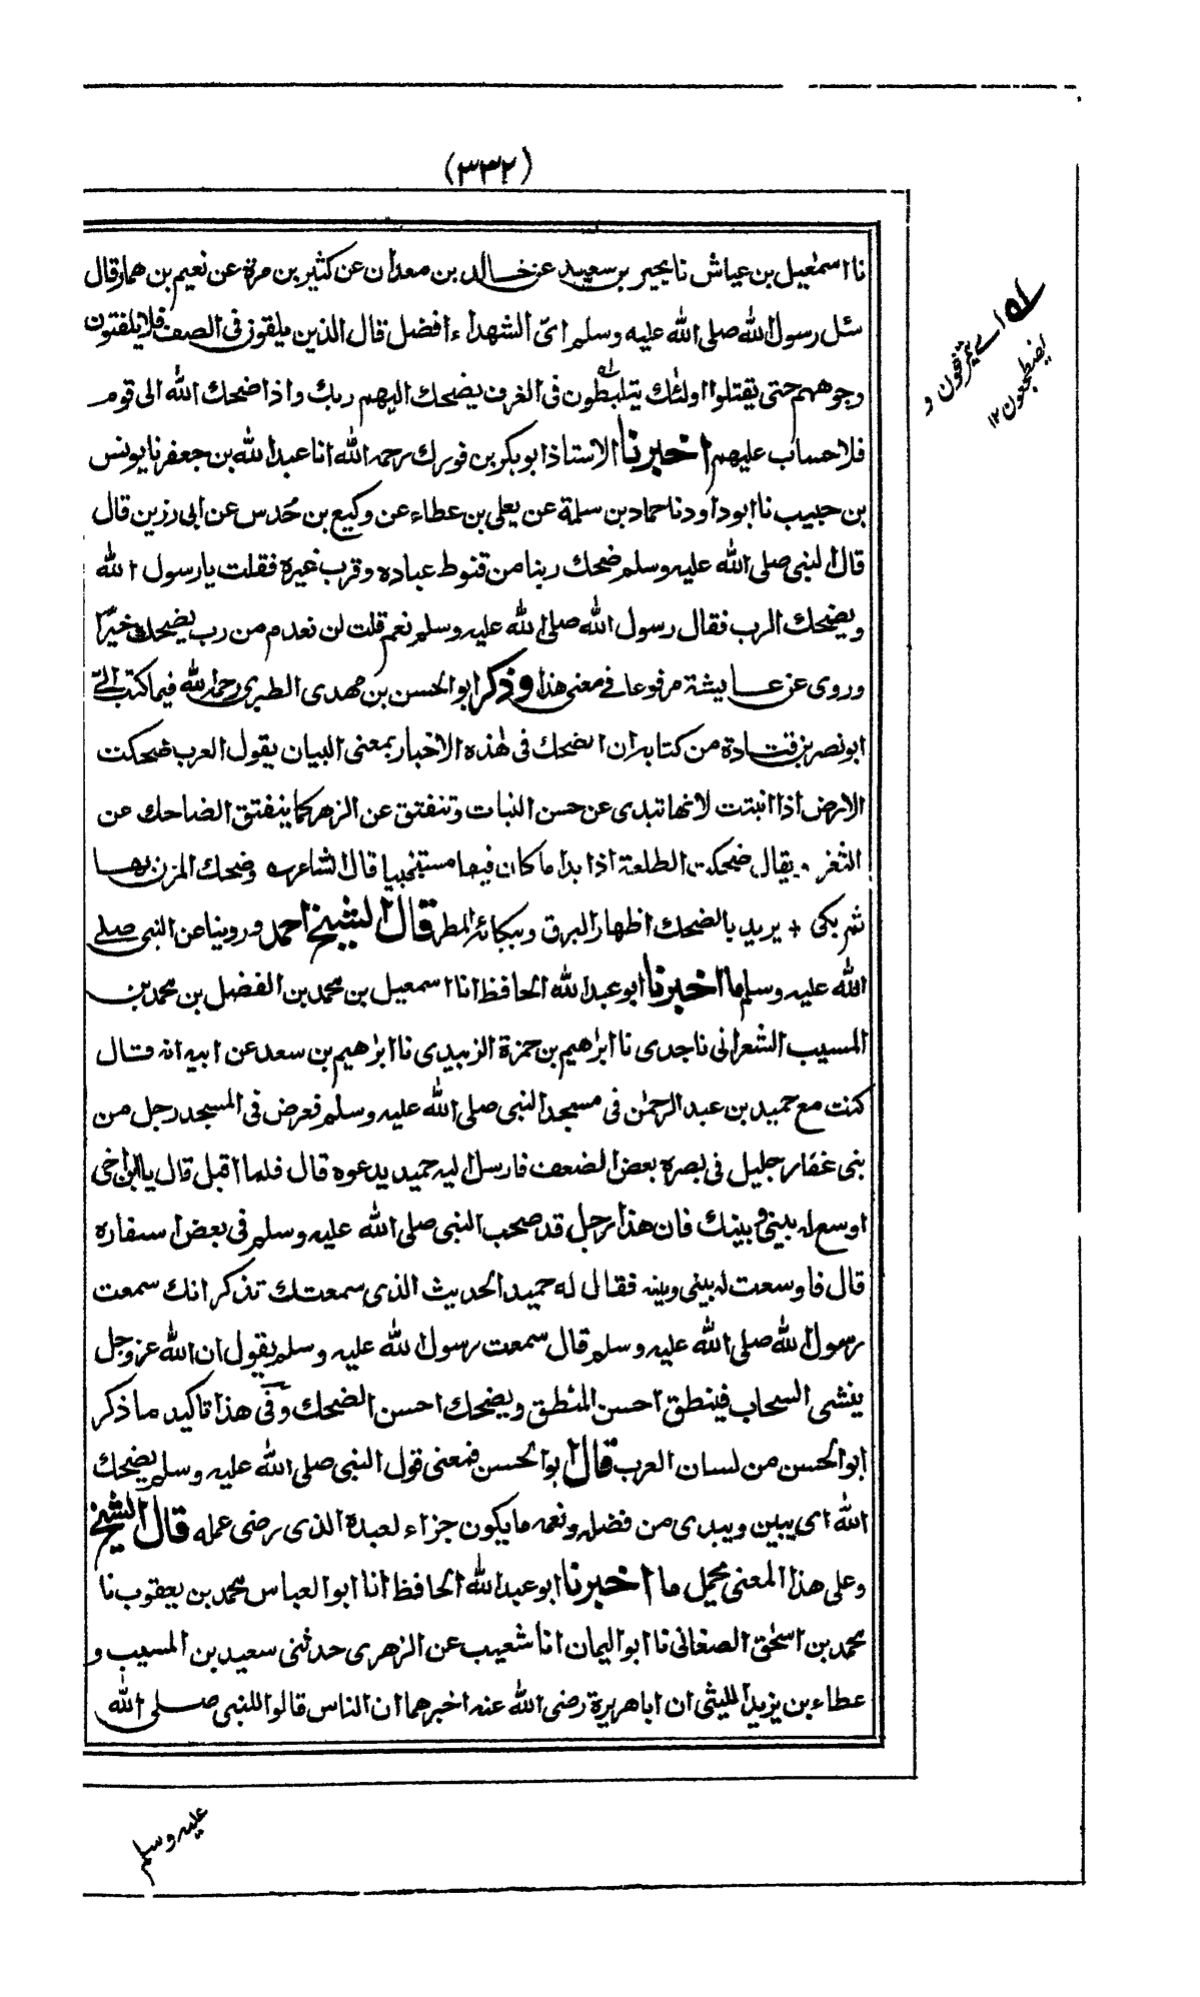 (٣٣٢)
نا اسمٰعيل بن عياش نا بحير بن سعيد عن خالد بن معدان عن كثير بن مرة عن نعيم بن همار قال
سئل رسول الله صلى الله عليه وسلم اىّ الشهداء افضل قال الذين يلقون فى الصف فلا يلفتون
وجوههم حتى يقتلوا اولئك يتلبطون فى الغرف يضحك اليهم ربك واذا ضحك الله الى قوم
فلا حساب عليهم اخبرنا الاستاذ ابو بكر بن فورك رحمه الله انا عبد الله بن جعفر نا يونس
بن حبيب نا ابو داود نا حماد بن سلمة عن يعلى بن عطاء عن وكيع بن حُدس عن ابى رزين قال
قال النبى صلى الله عليه وسلم ضحك ربنا من قنوط عباده وقرب غيره فقلت يا رسول الله
ويضحك الرب فقال رسول الله صلى الله عليه وسلم نعم قلت لن نعدم من رب يضحك خيرًا
وروى عن عايشة مرفوعا فى معنى هذا وذكر ابو الحسن بن مهدى الطبرى رحمه الله فيما كتب الىّ
ابو نصر بن قتادة من كتابه ان الضحك فى هٰذه الاخبار بمعنى البيان يقول العرب ضحكت
الارض اذا انبتت لانها تبدى عن حسن النبات وتنفتق عن الزهر كما ينفتق الضاحك عن
الثغر ۔ يقال ضحكت الطلعة اذا بدا ما كان فيها مستخبيا قال الشاعر ؎ وضحك المزن بها
ثم بكى + يريد بالضحك اظهار البرق وببكائه المطر قال الشيخ احمد وروينا عن النبى صلى
الله عليه وسلم ما اخبرنا ابو عبد الله الحافظ انا اسمعيل بن محمد بن الفضل بن محمد بن
المسيب الشعرانى نا جدى نا ابرٰهيم بن حمزة الزبيدى نا ابرٰهيم بن سعد عن ابيه انه قال
كنت مع حميد بن عبد الرحمٰن فى مسجد النبى صلى الله عليه وسلم فعرض فى المسجد رجل من
بنى غفار جليل فى بصره بعض الضعف فارسل اليه حميد يدعوه قال فلما اقبل قال يا ابن اخى
اوسع له بينى وبينك فان هذا رجل قد صحب النبى صلى الله عليه وسلم فى بعض اسفاره
قال فاوسعت له بينى وبينه فقال له حميد الحديث الذى سمعتك تذكر انك سمعت
رسول الله صلى الله عليه وسلم قال سمعت رسول الله عليه وسلم يقول ان الله عز وجل
ينشى السحاب فينطق احسن المنطق ويضحك احسن الضحك وفى هذا تاكيد ما ذكر
ابو الحسن من لسان العرب قال ابو الحسن فمعنى قول النبى صلى الله عليه وسلم يضحك
الله اى يبين ويبدى من فضله ونعمه ما يكون جزاء لعبده الذى رضى عمله قال الشيخ
وعلى هذا المعنى يحمل ما اخبرنا ابو عبد الله الحافظ انا ابو العباس محمد بن يعقوب نا
محمد بن اسحٰق الصغانى نا ابو اليمان انا شعيب عن الزهرى حدثنى سعيد بن المسيب و
عطاء بن يزيد الليثى ان ابا هريرة رضى الله عنه اخبرهما ان الناس قالوا للنبى صلى الله
عليه وسلم
له اى يترفعون و
يضطجعون ١٢